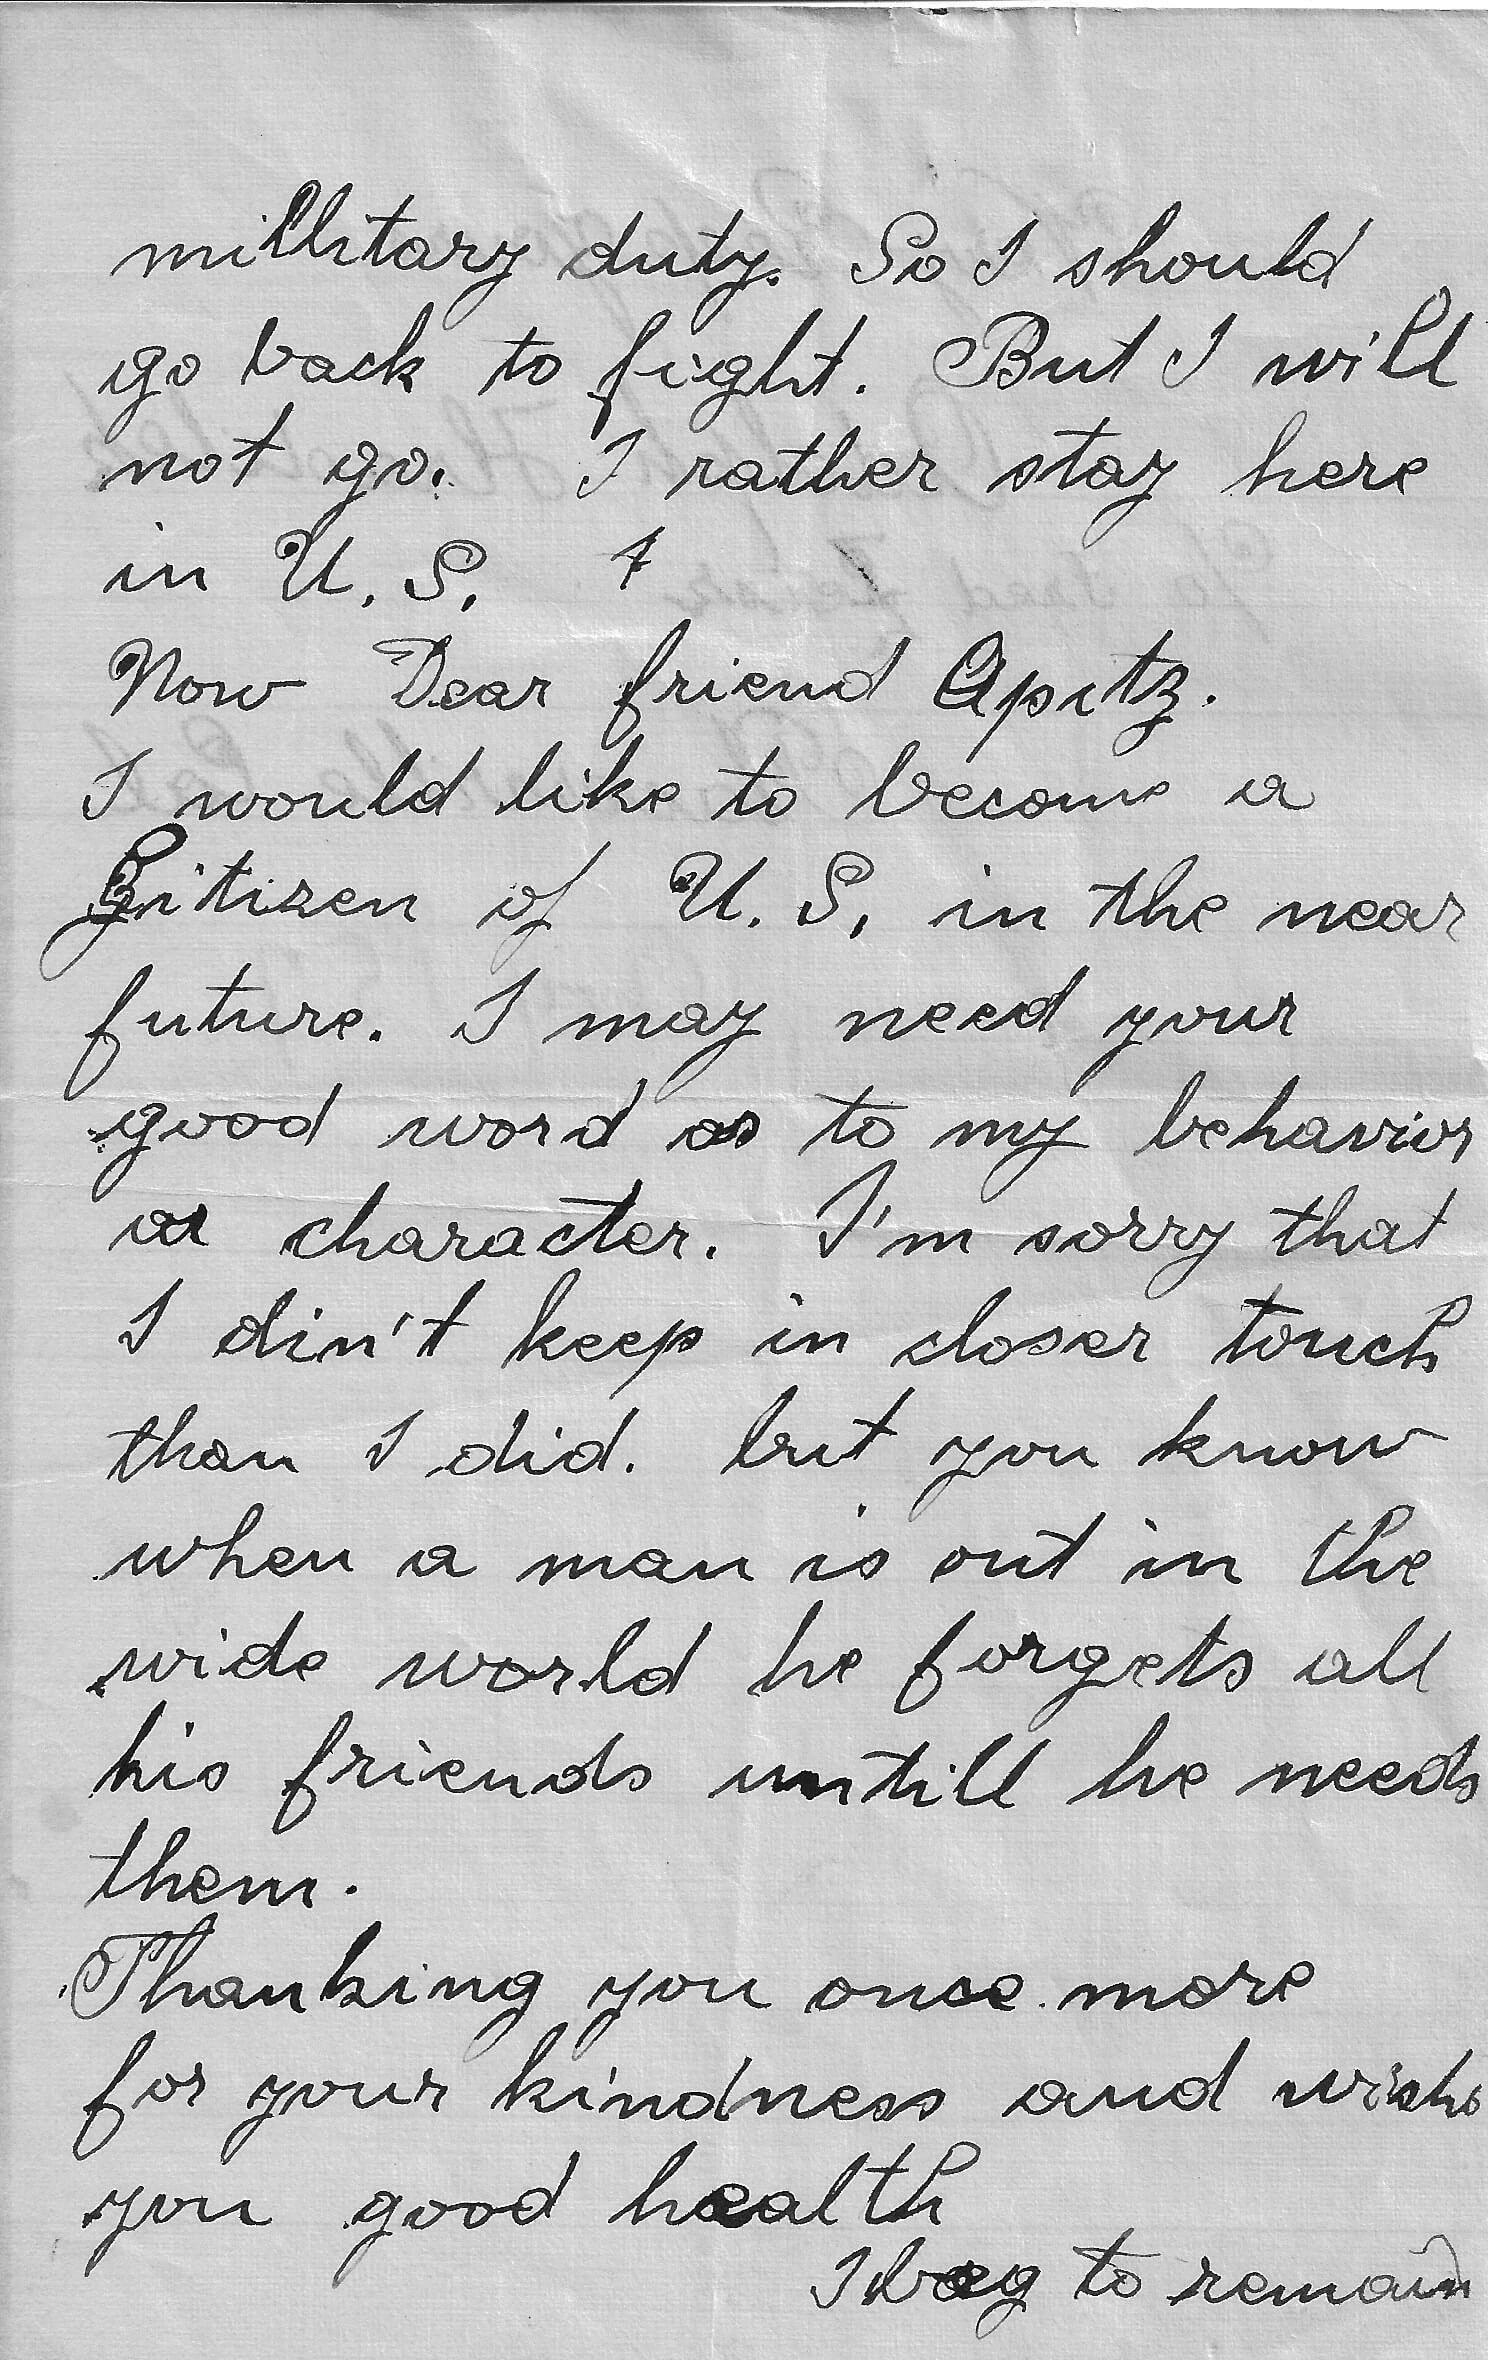 millitary duty. So I should
go back to fight. But I will
not go. I rather stay here
in U. S.
Now Dear friend Apitz.
I would like to become a
Citizen of U. S. in the near
future. I may need your
good word as to my behavior
or character. I'm sorry that
I din't keep in closer touch
than I did. but you know
when a man is out in the
wide world he forgets all
his friends untill he needs
them.
Thanking you once more
for your kindness and wish
you good health
I beg to remain